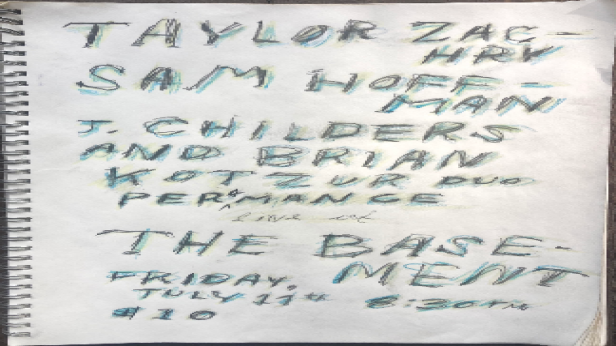 TAYLOR ZAC-
HRY
SAM HOFF-
MAN
J. CHILDERS
AND BRIAN
KOTZUR DUO
PER^MANCE
live at
THE BASE-
MENT
FRIDAY,
JULY 11th 8:30PM
$10